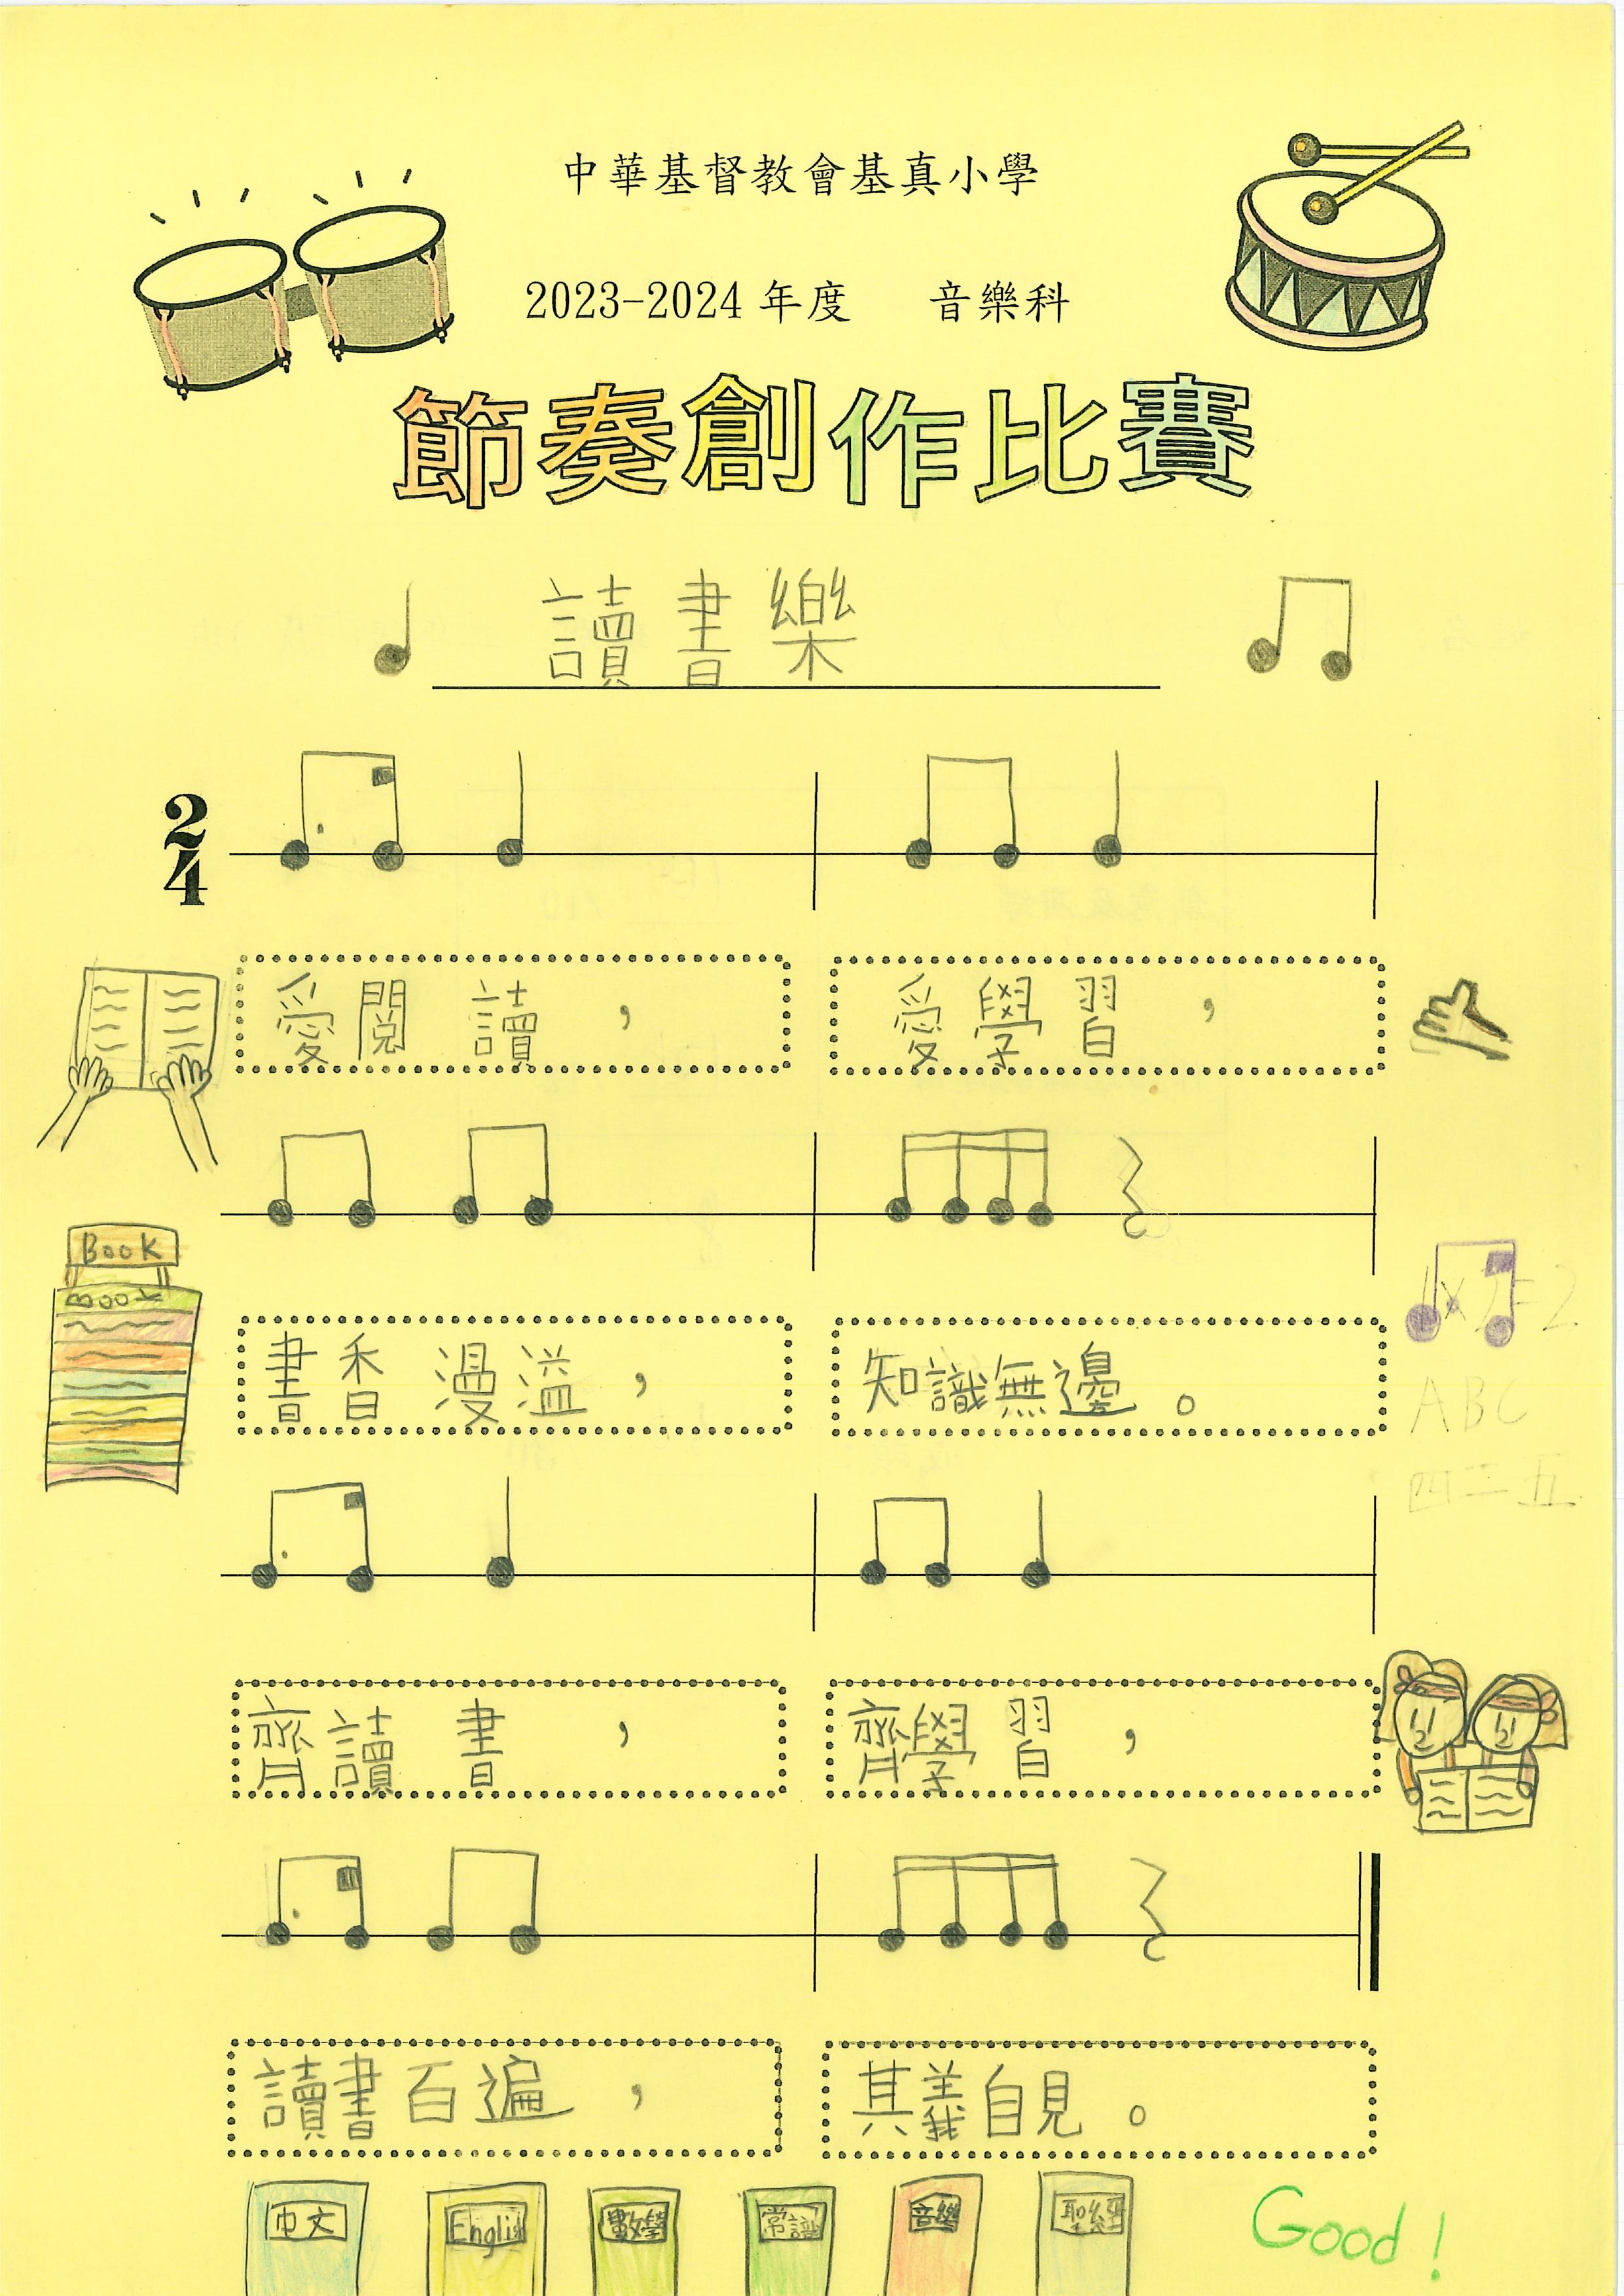 中華基督教會基真小學
2023-2024 年度 音樂科
節奏創作比賽
讀書樂
2
4
愛閱讀， 愛學習，
Book
Book
書香漫溢， 知識無邊。
1×2=2
ABC
四二五
齊讀書， 齊學習，
讀書百遍， 其義自見。
中文 English 數學 常識 音樂 聖經
Good!